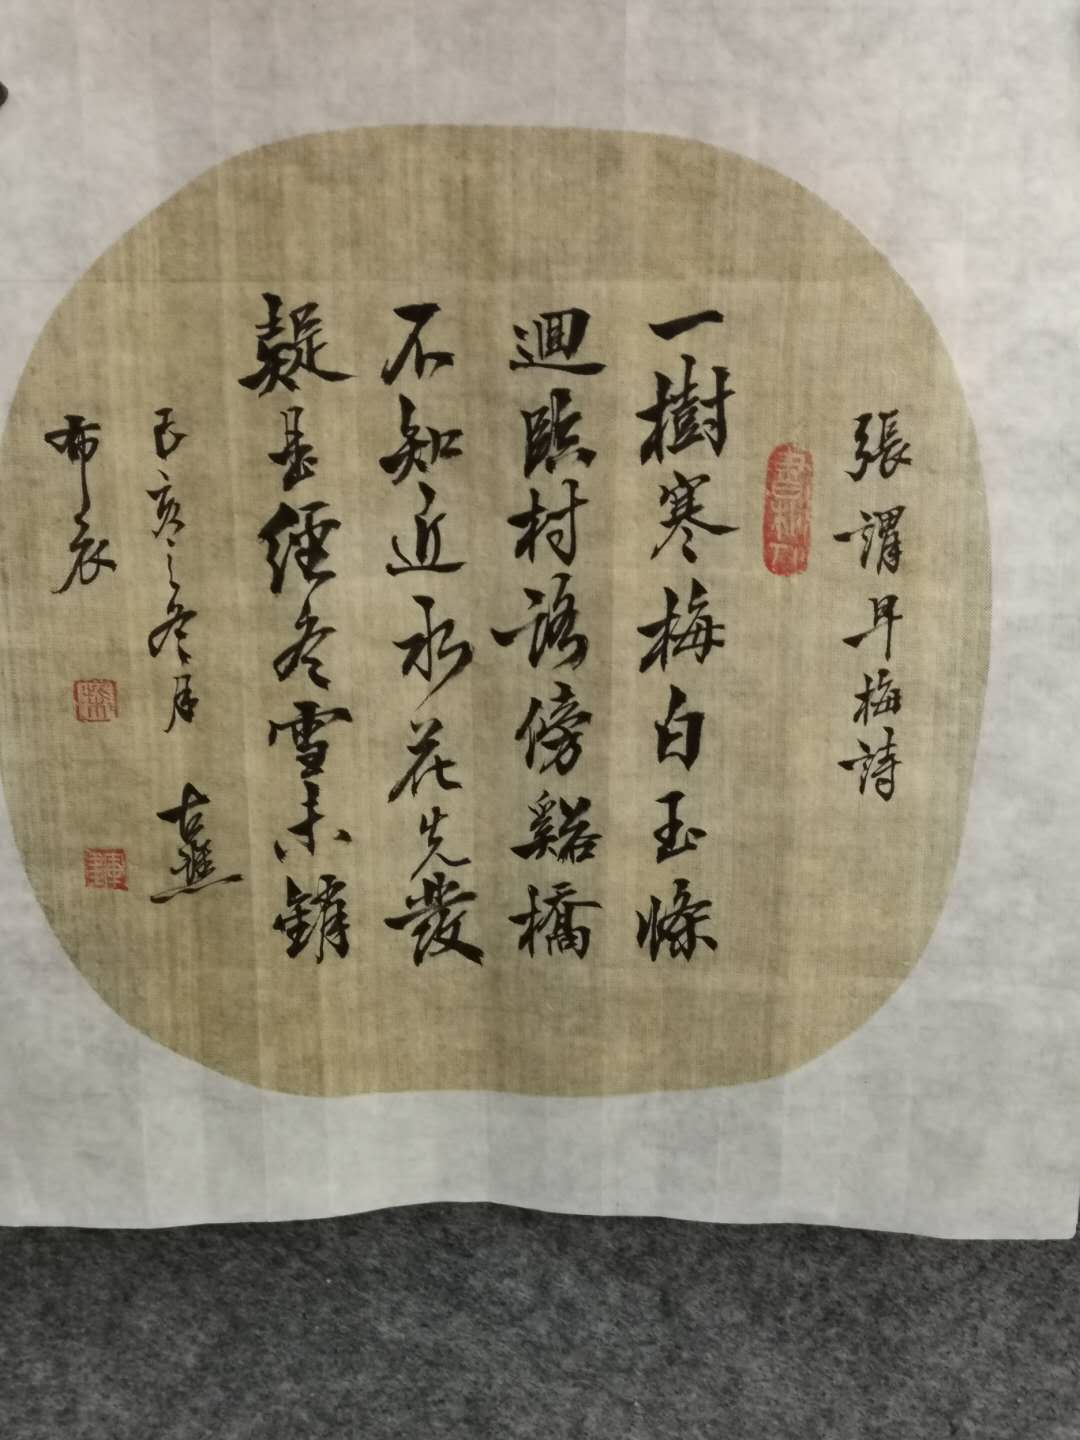 張謂早梅詩
一樹寒梅白玉條
迴臨村路傍谿橋
不知近水花先發
疑是經冬雪未銷
己亥之冬月 古燕
布衣